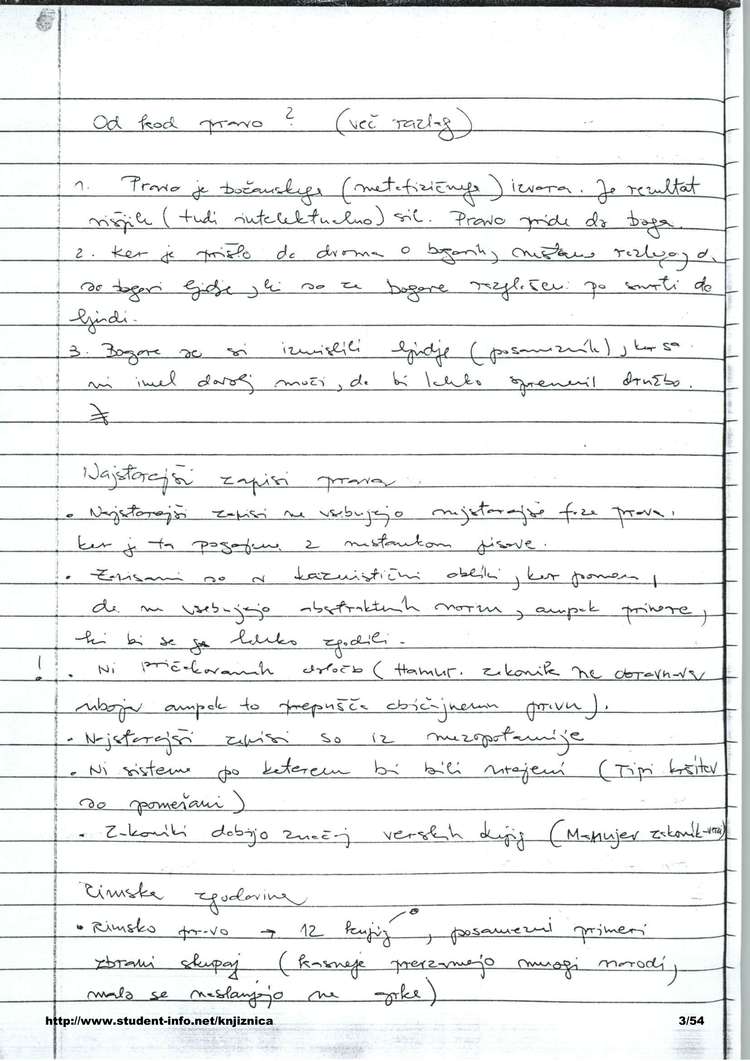 Od kod pravo? (več razlag)
1. Pravo je božanskega (metafizičnega) izvora. Je rezultat
višjih (tudi intelektualno) sil. Pravo pride do boga.
2. Ker je prišlo do dvoma o bogovih, nastane razlaga, da
so bogovi ljudje, ki so za bogove razglašeni po smrti do
ljudi.
3. Bogove so si izmislili ljudje (posameznik), ker sa
ni imel dovolj moči, da bi lahko spremenil družbo.
Najstarejši zapisi prava
• Najstarejši zapisi ne vsebujejo najstarejše faze prava,
ker je ta pogojena z nastankom pisave.
• Zapisani so v kazuistični obliki, kar pomeni,
da ne vsebujejo abstraktnih norm, ampak primere,
ki bi se lahko zgodili.
! • Ni pričakovanih določb (Hamur. zakonik ne obravnava
uboja ampak to prepušča običajnemu pravu).
• Najstarejši zapisi so iz mezopotamije
• Ni sistema po katerem bi bili urejeni (Tipi kršitev
so pomešani)
• Zakoniki dobijo značaj verskih knjig (Manujev zakonik
Rimska zgodovina
• Rimsko pravo → 12 knjig, posamezni primeri
zbrani skupaj (kasneje prevzamejo mnogi narodi,
malo se naslanjajo na grke)
http://www.student-info.net/knjiznica 3/54